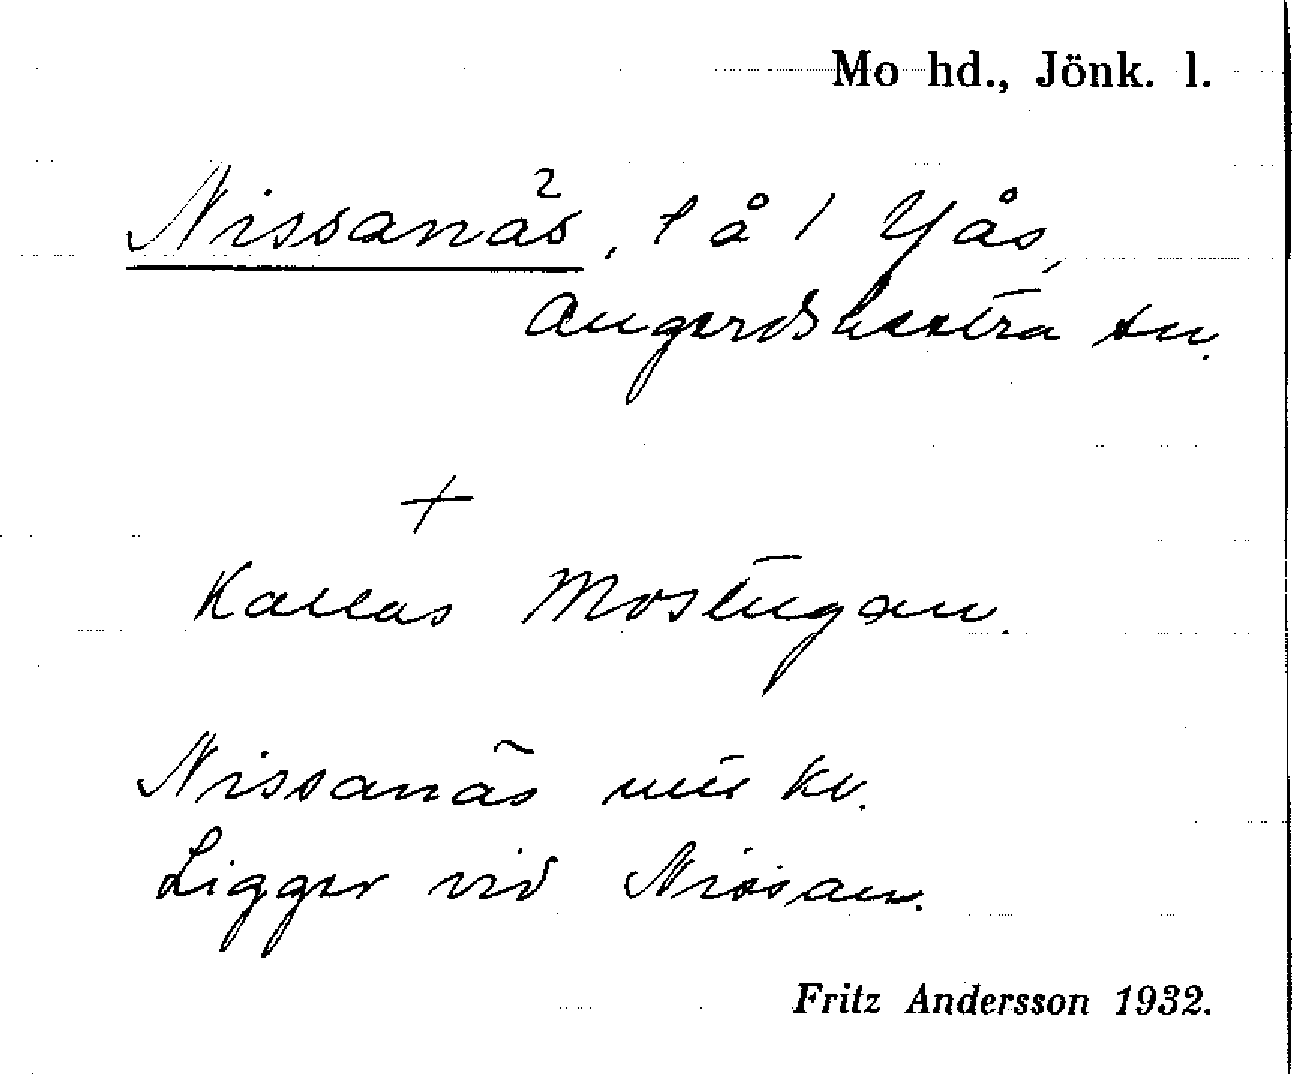 Mo hd., Jönk. l.
Nissanäs, l å / Yås,
Angerdshestra sn.
+
Kallas Mostugan.
Nissanäs utt kv.
Ligger vid Nissan.
Fritz Andersson 1932.